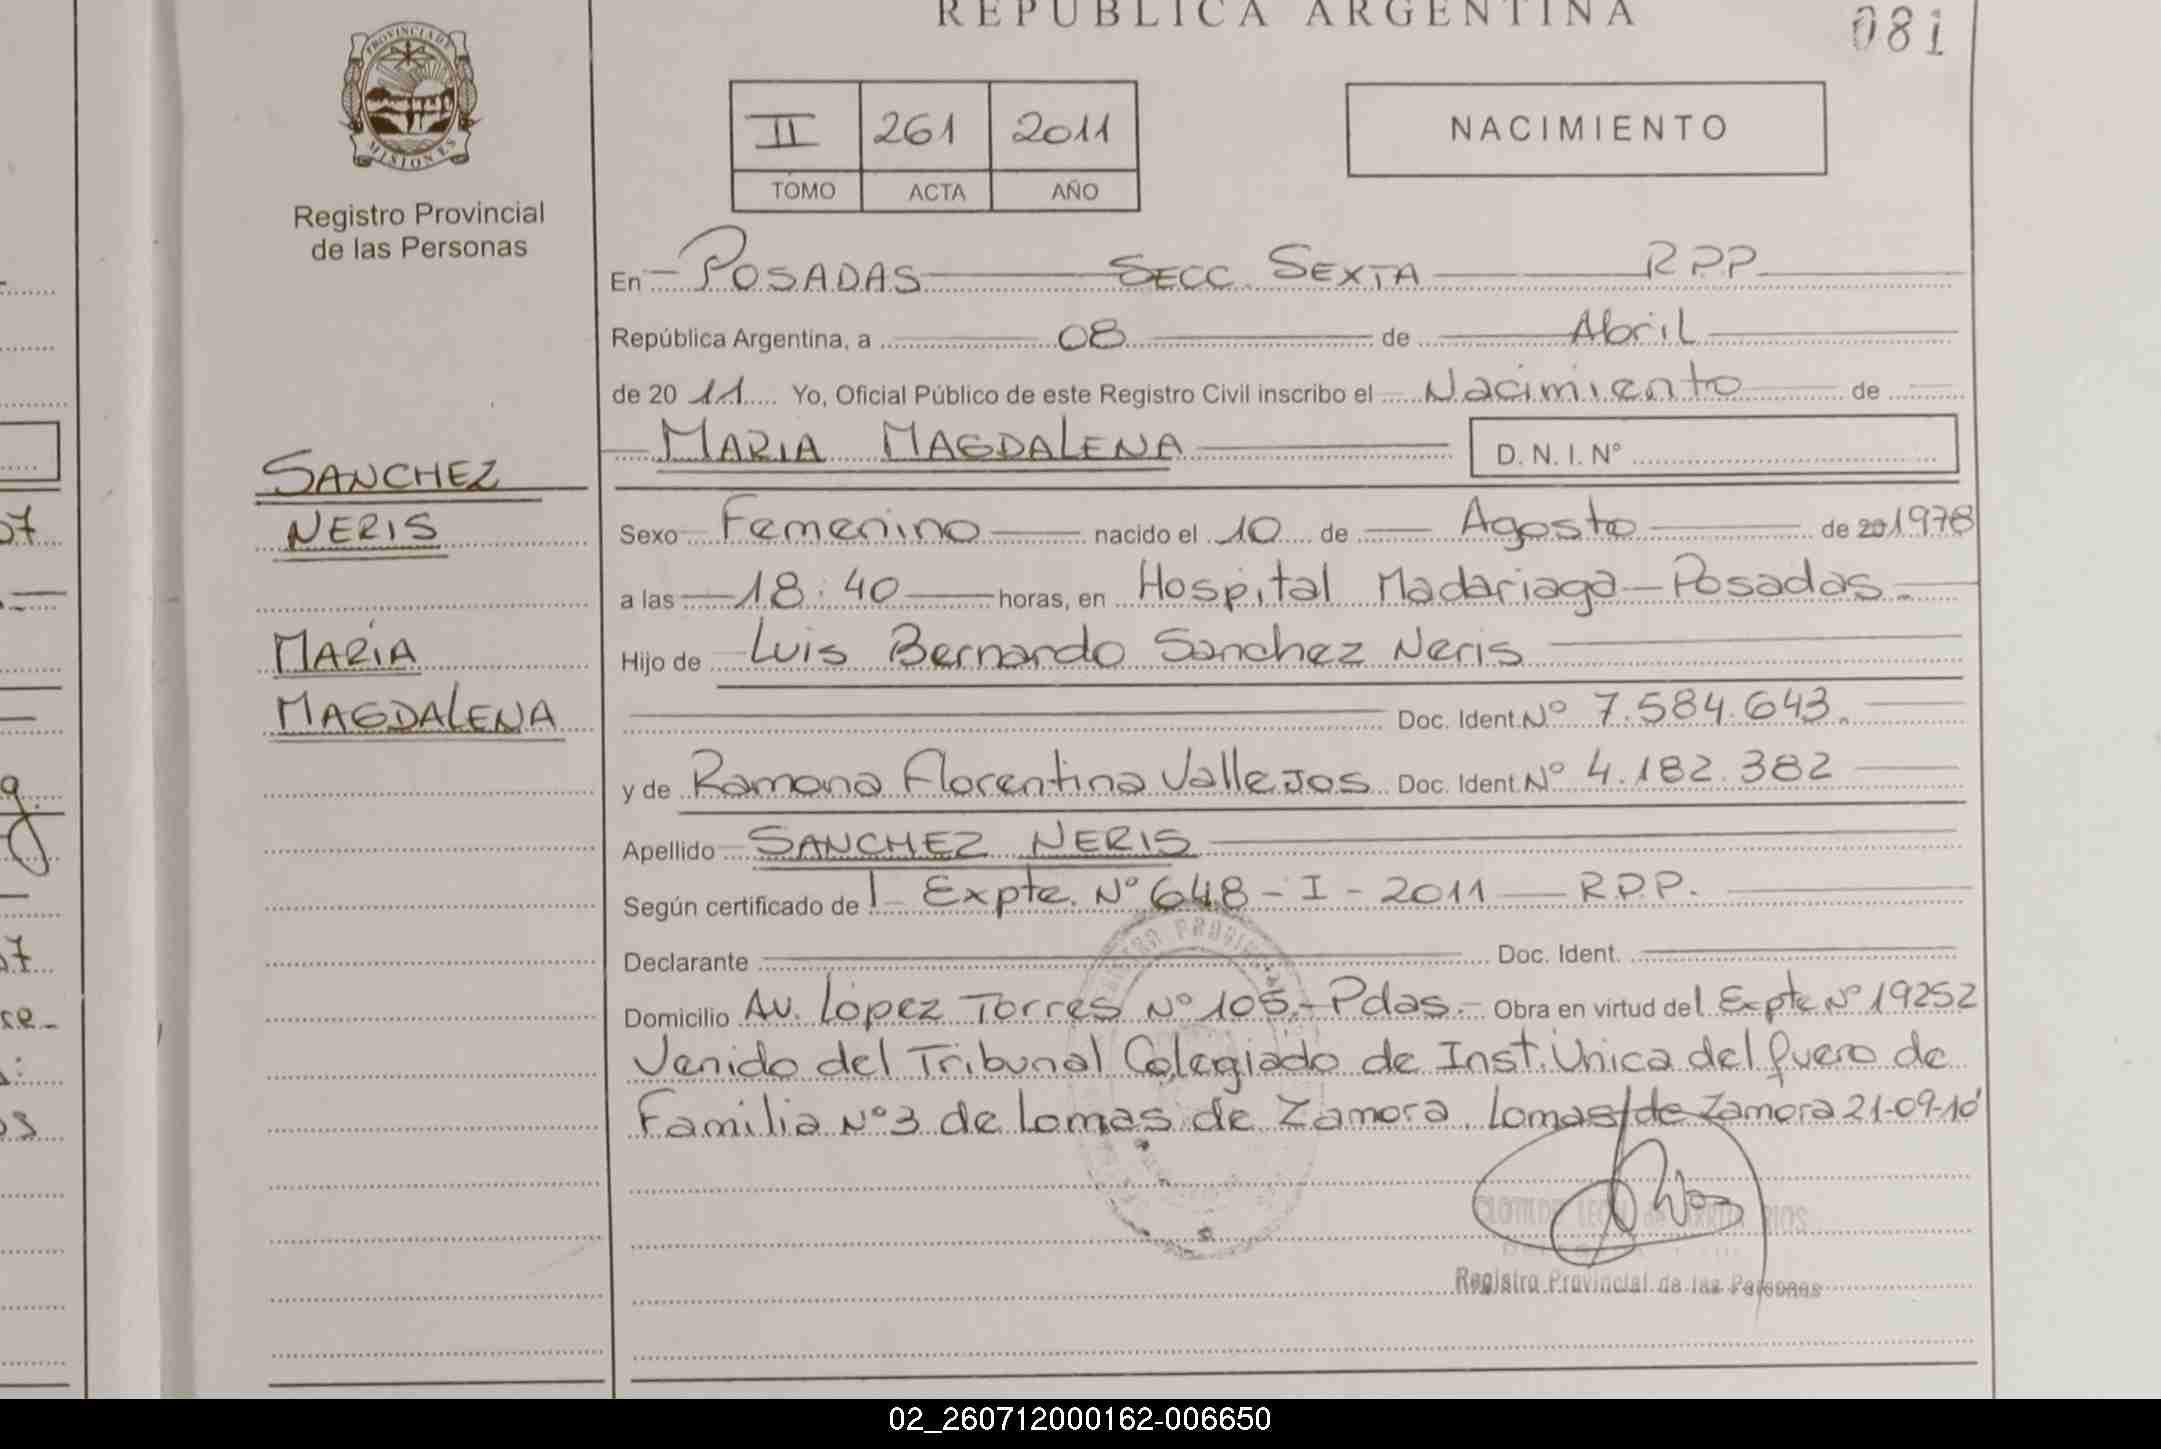 REPUBLICA ARGENTINA
081
PROVINCIA DE
MISIONES
Registro Provincial
de las Personas
II 261 2011
TOMO ACTA AÑO
NACIMIENTO
En POSADAS SECC. SEXTA RPP
República Argentina, a 08 de Abril
de 20 11 Yo, Oficial Público de este Registro Civil inscribo el Nacimiento de
MARIA MAGDALENA D. N. I. Nº
SANCHEZ
NERIS
MARIA
MAGDALENA
Sexo Femenino nacido el 10 de Agosto de 20 1978
a las 18:40 horas, en Hospital Madariaga - Posadas.
Hijo de Luis Bernardo Sanchez Neris
Doc. Ident. Nº 7.584.643.
y de Ramona Florentina Vallejos Doc. Ident. Nº 4.182.382
Apellido SANCHEZ NERIS
Según certificado del Expte. Nº 648 - I - 2011 R.P.P.
Declarante Doc. Ident.
Domicilio Av. López Torres Nº 105.- Pdas.- Obra en virtud del Expte Nº 19252
Venido del Tribunal Colegiado de Inst. Única del fuero de
Familia Nº 3 de Lomas de Zamora. Lomas de Zamora 21-09-10
Registro Provincial de las Personas
02_260712000162-006650